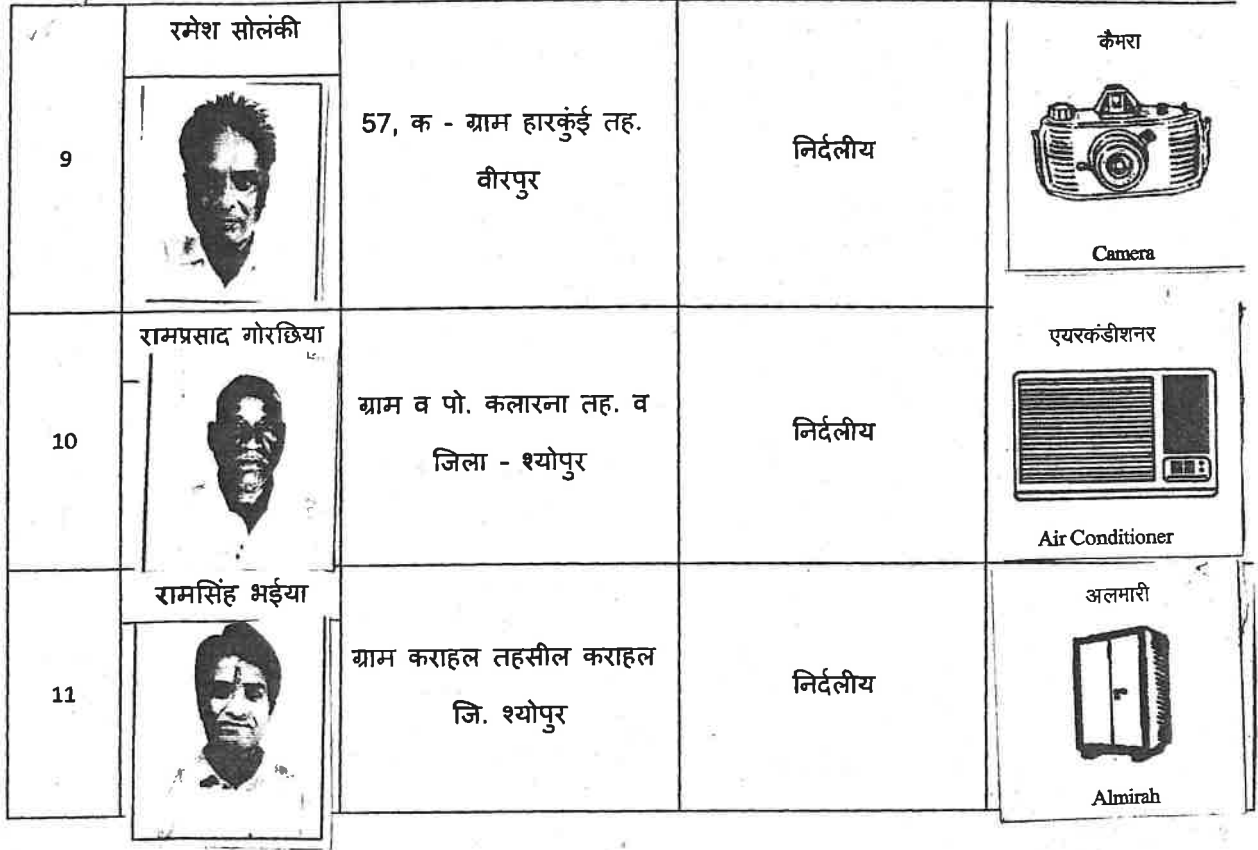 9
रमेश सोलंकी
57, क - ग्राम हारकुंई तह.
वीरपुर
निर्दलीय
कैमरा
Camera
10
रामप्रसाद गोरछिया
ग्राम व पो. कलारना तह. व
जिला - श्योपुर
निर्दलीय
एयरकंडीशनर
Air Conditioner
11
रामसिंह भईया
ग्राम कराहल तहसील कराहल
जि. श्योपुर
निर्दलीय
अलमारी
Almirah